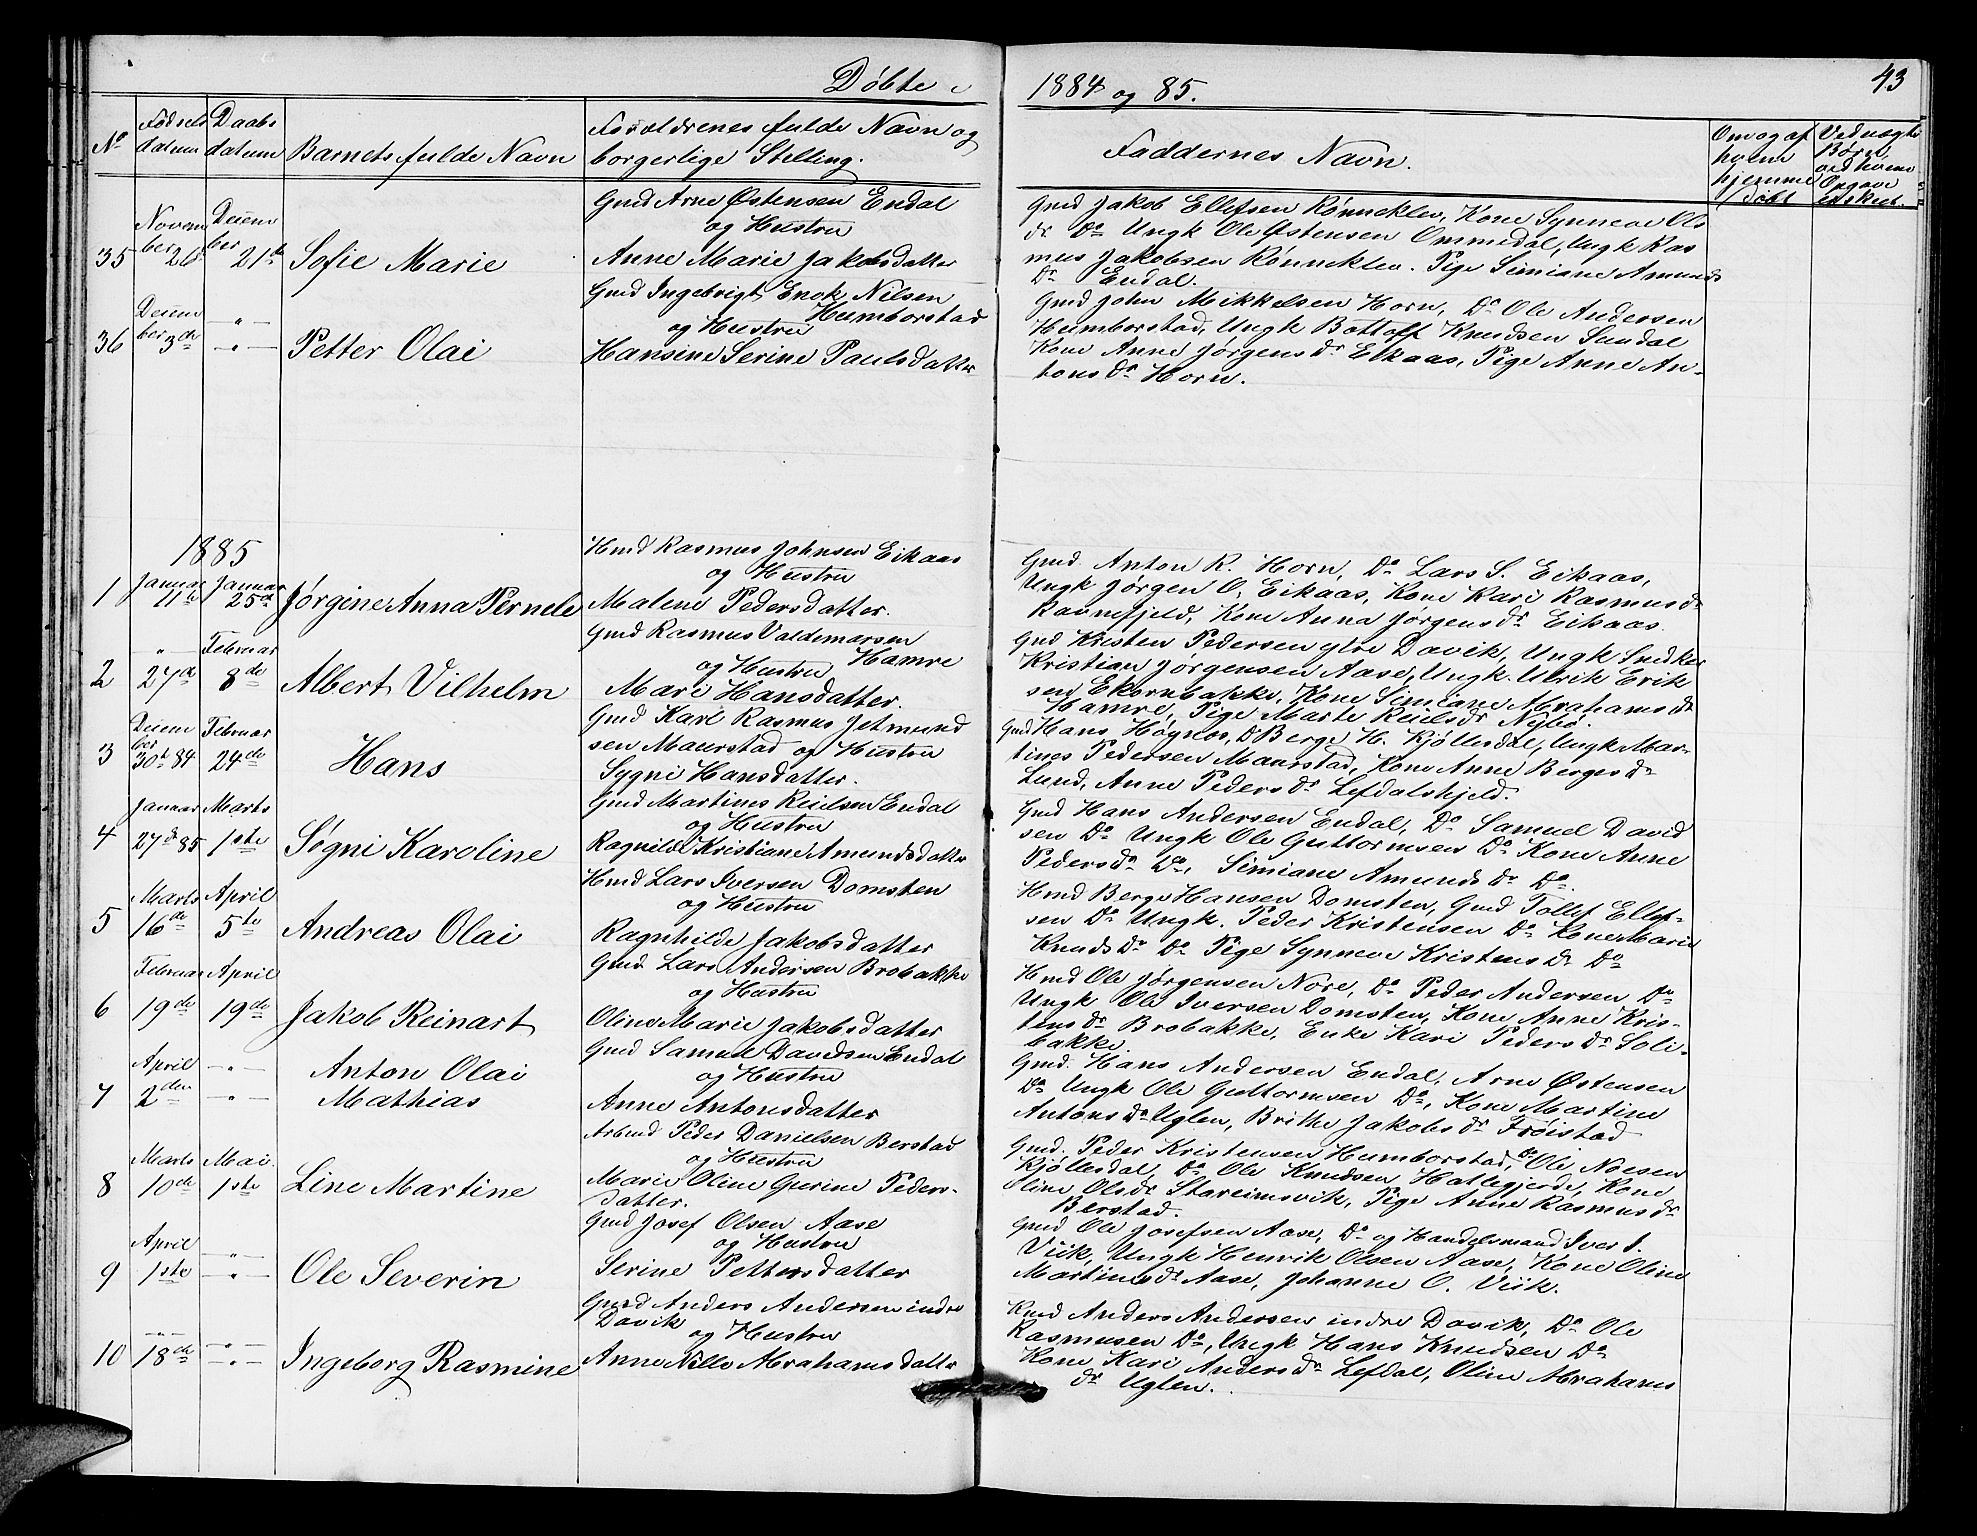 Døbte i
1884 og 85.
43
No
Fødsels
datum
Daabs
datum
Barnets fulde Navn
Forældrenes fulde Navn og
borgerlige Stelling.
Faddernes Navn.
Om og af
hvem
hjemme
døbt
Ved uægte
Børn,
ved hvem
Opgave
indskreb.
35
Novem
ber 26
Decem
ber 21de
Sofie Marie
Gmd Arne Østensen Endal
og Hustru
Anne Marie Jakobsdatter
Gmd Jakob Ellefsen Rønneklev, Kone Synneve Ols
dr Do Ungk Ole Østensen Ommedal, Ungk Ras
mus Jakobsen Rønneklev. Pige Simiane Amunds
Dr Endal.
36
Decem
ber 3die
— " —
— " —
Petter Olai
Gmd Ingebrigt Enok Nilsen
Humborstad
og Hustru
Hansine Serine Paulsdatter
Gmd John Mikkelsen Horn, Do Ole Andersen
Humborstad, Ungk Bottolf Knudsen Sundal
Kone Anne Jørgensdr Eikaas, Pige Anne An-
tonsdr Horn.
1885
1
Januar
11te
Januar
25de
Jørgine Anna Pernele
Hmd Rasmus Johnsen Eikaas
og Hustru
Malene Pedersdatter.
Gmd Anton R. Horn, Do Lars S. Eikaas,
Ungk Jørgen O. Eikaas, Kone Kari Rasmusdr
Ravnefjeld, Kone Anna Jørgensdr Eikaas.
2
— " —
27de
Februar
8de
Albert Vilhelm
Gmd Rasmus Valdemarsen
og Hustru Hamre
Mari Hansdatter.
Gmd Kristen Pedersen ytre Davik, Ungk Snidker
Kristian Jørgensen Aase, Ungk. Ulrik Erik
sen Ekornbakke, Kone Simiane Abrahamsdr
Hamre, Pige Marte Reielsdr Nybø.
3
Decem
ber
30t 84
Februar
24de
Hans
Gmd Karl Rasmus Jetmund
sen Maurstad og Hustru
Sygni Hansdatter.
Gmd Hans Høgnes, Do Berge H. Kjøllesdal, Ungk Mar-
tines Pedersen Maurstad, Kone Anne Bergesdr
Lund, Anne Pedersdr Lefdalshjeld.
4
Januar
27de 85
Marts
1ste
Søgni Karoline
Gmd Martines Reielsen Endal
og Hustru
Ragnilde Kristiane Amundsdatter
Gmd Hans Andersen Endal, Do Samuel David
sen Do Ungk Ole Guttormsen Do Kone Anne
Pedersdr Do, Simiane Amundsdr Do.
5
Marts
16de
April
5te
Andreas Olai
Hmd Lars Iversen Domsten
og Hustru
Ragnhilde Jakobsdatter
Hmd Berge Hansen Domsten, Gmd Tollef Ellef-
sen Do Ungk. Peder Kristensen Do Kone Marie
Knudsdr Do Pige Synneve Kristensdr Do
6
Februar
19de
April
19de
Jakob Reinart
Gmd. Lars Andersen Brobakke
og Hustru
Oline Marie Jakobsdatter
Hmd Ole Jørgensen Nore, Do Peder Andersen Do
Ungk Ole Iversen Domsten, Kone Anne Kris-
tensdr Brobakke, Enke Kari Pedersdr Soli-
bakke.
7
April
2den
— " —
— " —
Anton Olai
Mathias
Gmd Samuel Davidsen Endal
og Hustru
Anne Antonsdatter
Gmd. Hans Andersen Endal, Arne Østensen
Do Ungk Ole Guttormsen Do, Kone Martine
Antonsdr Uglen, Brithe Jakobsdr Frøistad
8
Marts
10de
Mai
1ste
Line Martine
Arbmd Peder Danielsen Berstad
og Hustru
Marie Oline Gurine Peders-
datter.
Gmd. Peder Kristensen Humborstad, Do Ole Noesen
Kjøllesdal, Do Ole Knudsen Hatlegjerde, Kone
Oline Olsdr Stareimsvik, Pige Anne Rasmusdr
Berstad.
9
April
1ste
— " —
— " —
Ole Severin
Gmd Josef Olsen Aase
og Hustru
Serine Pettersdatter
Gmd Ole Josefsen Aase, Do og Handelsmand Iver I.
Viik, Ungk Henrik Olsen Aase, Kone Oline
Martinusdr Aase, Johanne O. Viik.
10
— " —
18de
— " —
— " —
Ingeborg Rasmine
Gmd Anders Andersen indre
Davik
og Hustru
Anne Nille Abrahamsdatter
Kmd Anders Andersen indre Davik, Do Ole
Rasmusen Do, Ungk Hans Knudsen Do
Kone Kari Andersdr Lefdal, Oline Abrahams
dr Uglen.